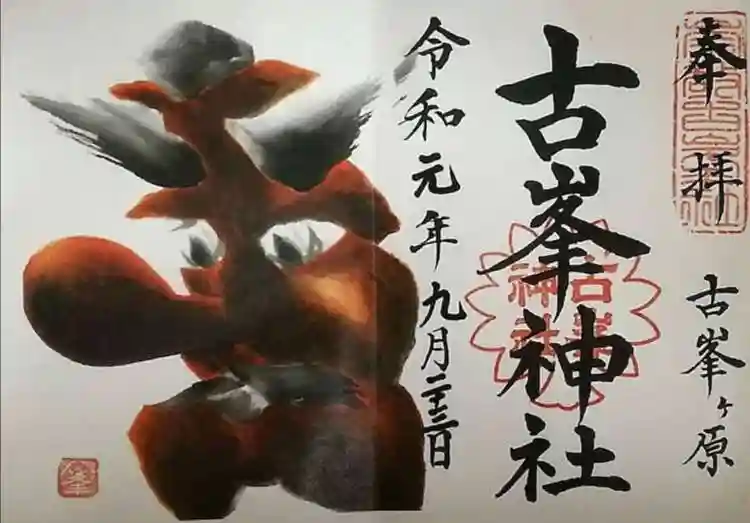 奉拝
古峯ヶ原
古峯神社
古峯神社
令和元年九月二十三日
峯